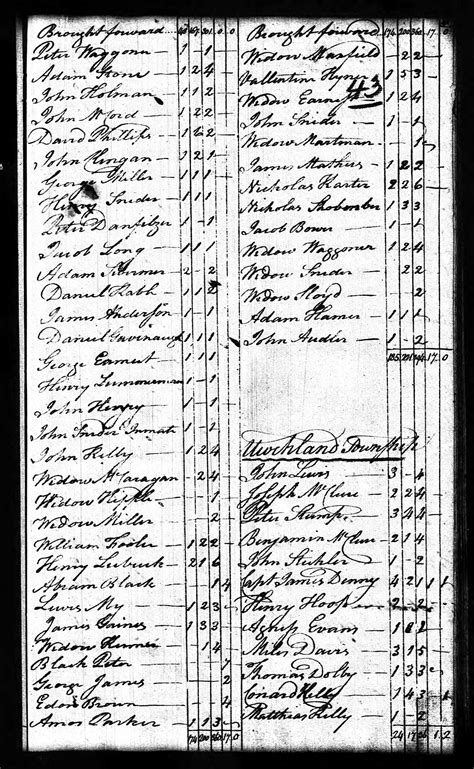 Brought forward
Peter Waggoner 1 - 1
Adam 1 2 4
John Holman 1 1 2
John McCord 1 2 2
David Phillips 1 6 2
John 1 2 1
George Miller 1 1 1
Henry Snider 1 1 1
Peter Danfelzer 1 - 1
Jacob Long 1 1 1
Adam 2 - 2
Daniel 1 1 2
James Anderson 1 - 1
Daniel 1 1 1
George Earnest 1 1 1
Henry 1 - 1
John Henry 1 - 1
John Snider Inmate 1 - 1
John Kelly 1 2 4
Widow - 2 4
Widow - 1
Widow Miller - 2
William 1 2 2
Henry 2 1 6
Abram Black - 1 4
Lewis My 1 2 3
James Gaines 1 3 3
Widow - 1 4
Black Peter 7
George James 2
Edom Brown 4
Amos Parker 1 1 3
174 200 360 17 0
Brought forward 174 200 360 17 0
Widow Maxfield - 2 2
Vallentine Hyner 1 5 3
43
Widow Earnest 1 2 4
John Snider 1 - 1
Widow Hartman - 1
James Mathias 1 2 2
Nicholas Harter 2 2 6
Nicholas 1 3 3
Jacob Bower 1 - 1
Widow Waggoner 1 2 4
Widow Snider - 2 2
Widow Lloyd - - 2
Adam Hamer 1 1 1
John Audler 1 - 2
17 0
Uwchland Township
John Lewis 3 - 4
Joseph McClure 2 2 4
Peter Stump 3 4 4
Benjamin McClure 2 1 4
John 1 - 2
Capt James Denny 4 2 1 1 1
Henry Hoops 2 - 2
Agness Evans 1 1 2
Miles Davis 3 1 5
Thomas Dolby 1 3 3
Conard Kelly 1 4 3 1
Matthias Kelly 1 - 2
24 17 36 1 2